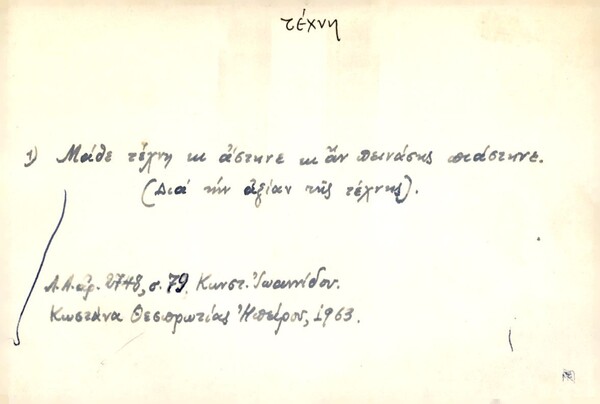 τέχνη
1) Μάθε τέχνη κι ἄστηνε κι ἂν πεινάσῃς πιάστηνε.
(Διά τήν ἀξίαν τῆς τέχνης).
Λ.Α. ἀρ. 2748, σ. 79, Κωνστ. Ἰωαννίδου.
Κωστάνα Θεσπρωτίας Ἠπείρου, 1963.